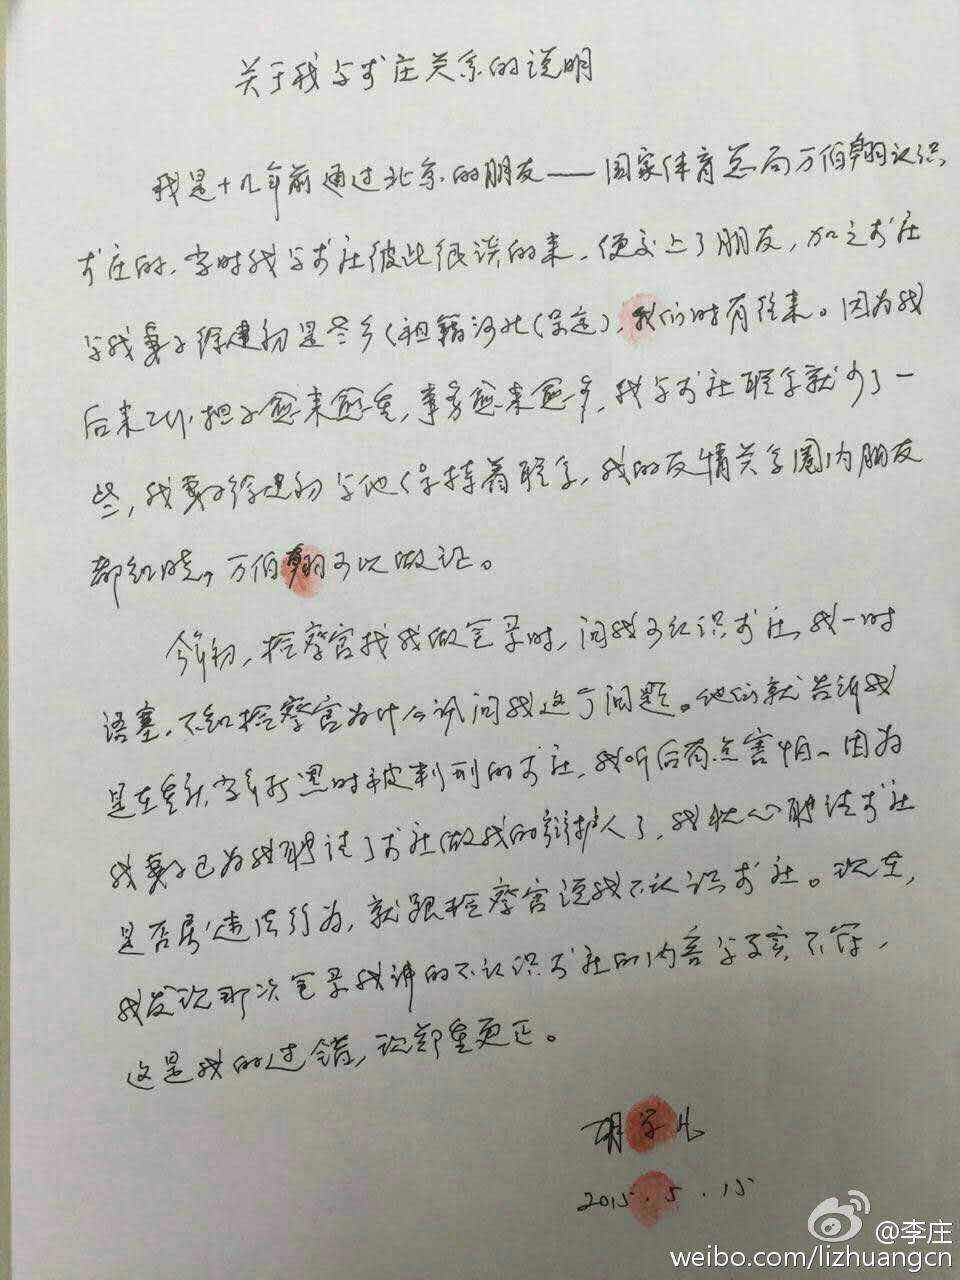 关于我与李庄关系的说明
我是十几年前通过北京的朋友——国家体育总局万伯翱认识
李庄的，当时我与李庄彼此很谈的来，便交上了朋友，加之李庄
与我妻子徐建初是老乡（祖籍河北保定），我们时有往来。因为我
后来工作担子愈来愈重，事务愈来愈多，我与李庄联系就少了一
些，我妻子徐建初与他保持着联系，我的友情关系圈内朋友
都知晓，万伯翱可以做证。
今年初，检察官找我做笔录时，问我可认识李庄，我一时
语塞，不知检察官为什么讯问我这个问题。他们就告诉我
是在重庆当年打黑时被判刑的李庄，我听后有点害怕，因为
我妻子已为我聘请了李庄做我的辩护人了，我担心聘请李庄
是否属违法行为，就跟检察官说我不认识李庄。现在，
我发现那次笔录我讲的不认识李庄的内容与事实不符，
这是我的过错，现郑重更正。
胡学凡
2015.5.15
@李庄
weibo.com/lizhuangcn